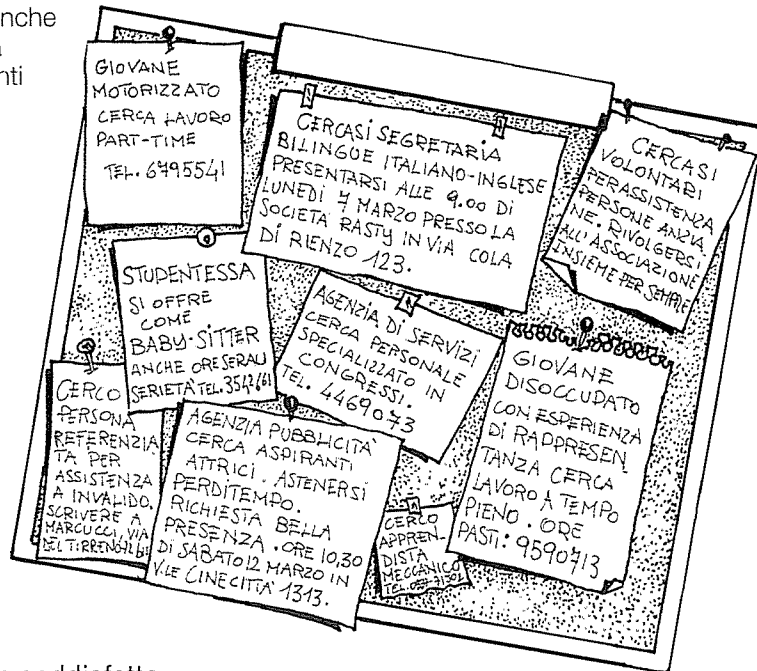 nche
nti
GIOVANE
MOTORIZZATO
CERCA LAVORO
PART-TIME
TEL. 6795541
CERCASI SEGRETARIA
BILINGUE ITALIANO-INGLESE
PRESENTARSI ALLE 9.00 DI
LUNEDI 7 MARZO PRESSO LA
SOCIETÀ RASTY IN VIA COLA
DI RIENZO 123.
CERCASI
VOLONTARI
PER ASSISTENZA
PERSONE ANZIA
NE. RIVOLGERSI
ALL'ASSOCIAZIONE
INSIEME PER SEMPRE
STUDENTESSA
SI OFFRE
COME
BABY-SITTER
ANCHE ORE SERALI
SERIETÀ TEL.
AGENZIA DI SERVIZI
CERCA PERSONALE
SPECIALIZZATO IN
CONGRESSI.
TEL. 4469073
GIOVANE
DISOCCUPATO
CON ESPERIENZA
DI RAPPRESEN
TANZA CERCA
LAVORO A TEMPO
PIENO. ORE
PASTI: 9590713
CERCO
PERSONA
REFERENZIA
TA PER
ASSISTENZA
A INVALIDO.
SCRIVERE A
MARCUCCI, VIA
DEL TIRRENO
AGENZIA PUBBLICITÀ
CERCA ASPIRANTI
ATTRICI. ASTENERSI
PERDITEMPO.
RICHIESTA BELLA
PRESENZA. ORE 10,30
DI SABATO 12 MARZO IN
V.LE CINECITTÀ 1313.
CERCO
APPREN-
DISTA
MECCANICO
TEL.